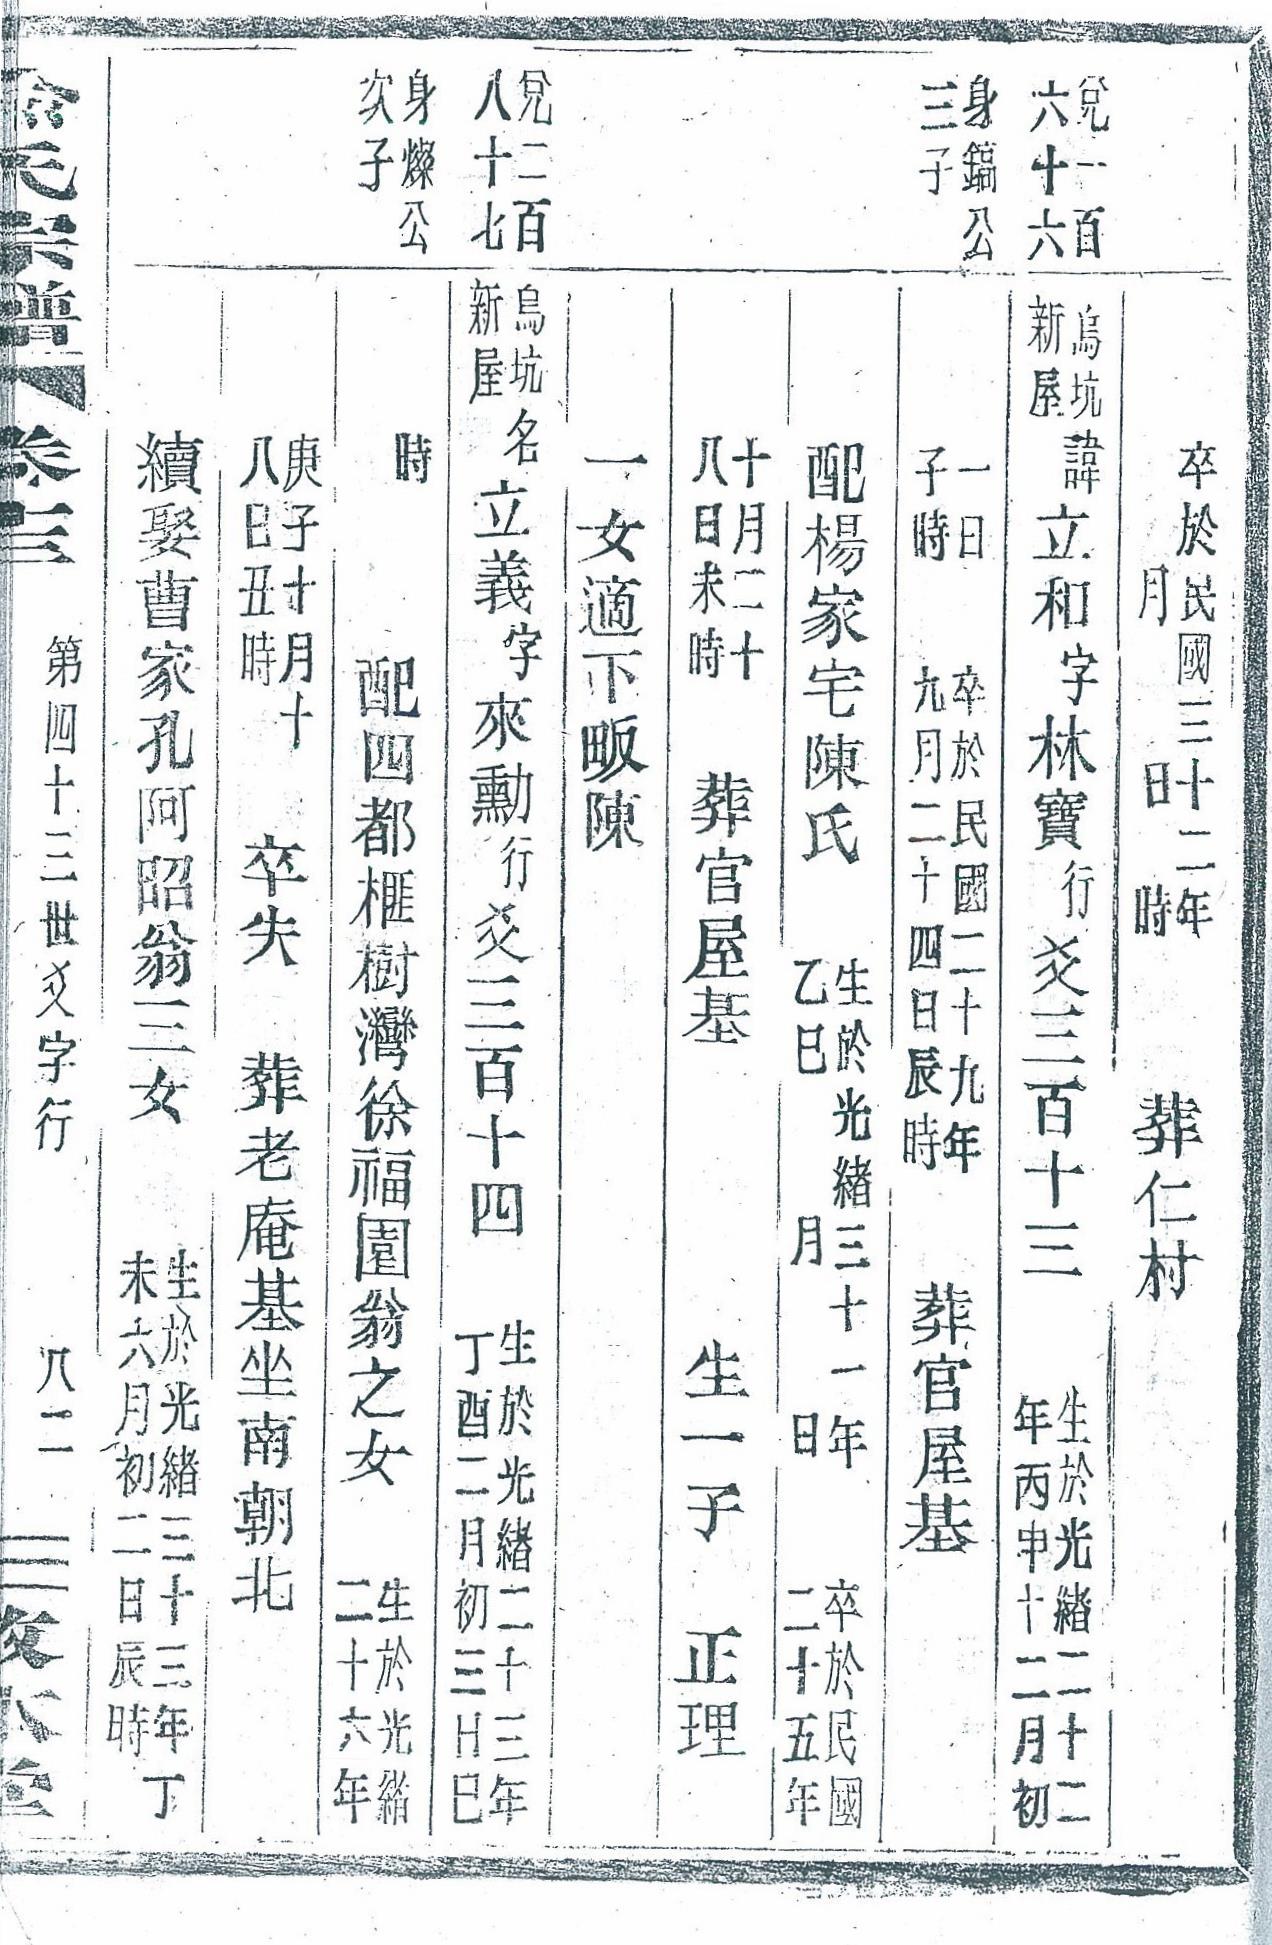 卒於民國三十二年
月　日　時
葬仁村
兌一百
六十六
烏坑
新屋
諱立和字林寶行爻三百十三
生於光緒二十二
年丙申十二月初
身鎬公
三子
一日
子時
卒於民國二十九年
九月二十四日辰時
葬官屋基
配楊家宅陳氏
生於光緒三十一年
乙巳　月　日
卒於民國
二十五年
十月二十
八日未時
葬官屋基
生一子　正理
一女適下畈陳
兌二百
八十七
烏坑
新屋
名立義字來勳行爻三百十四
生於光緒二十三年
丁酉二月初三日巳
身燦公
次子
時
配四都榧樹灣徐福園翁之女
生於光緒
二十六年
庚子十月十
八日丑時
卒失
葬老庵基坐南朝北
續娶曹家孔阿昭翁三女
生於光緒三十三年丁
未六月初二日辰時
氏宗譜
卷三
第四十三世爻字行
八二